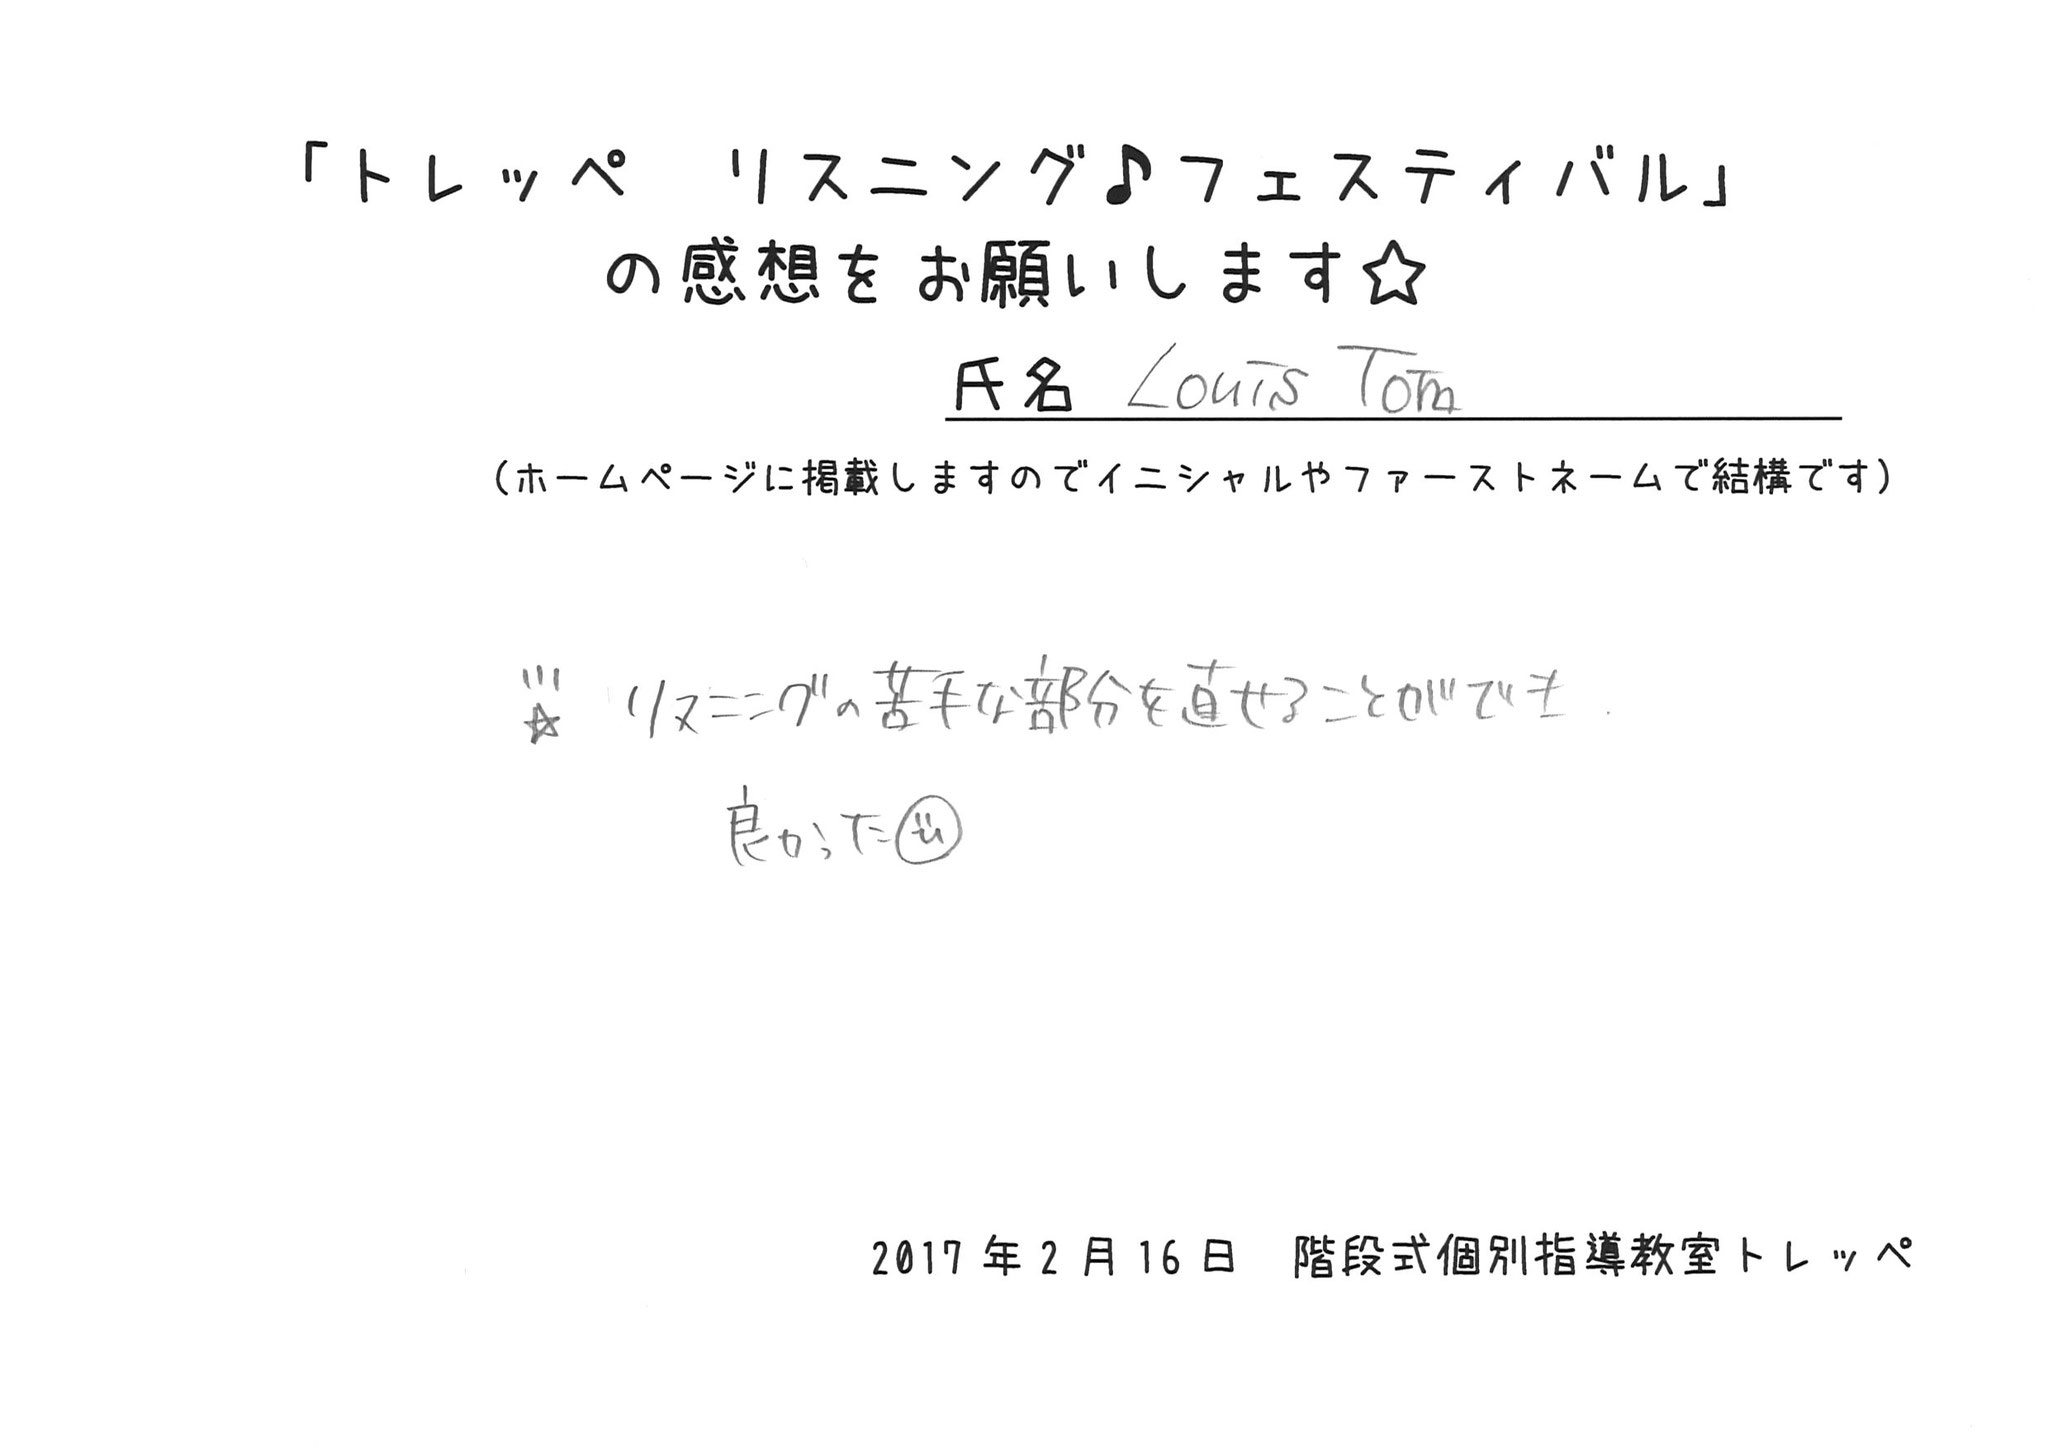 「トレッペ　リスニング♪フェスティバル」
の感想をお願いします☆
氏名 Louis Tom
(ホームページに掲載しますのでイニシャルやファーストネームで結構です)
☆ リスニングの苦手な部分を直せることができ
良かった
2017年2月16日　階段式個別指導教室トレッペ